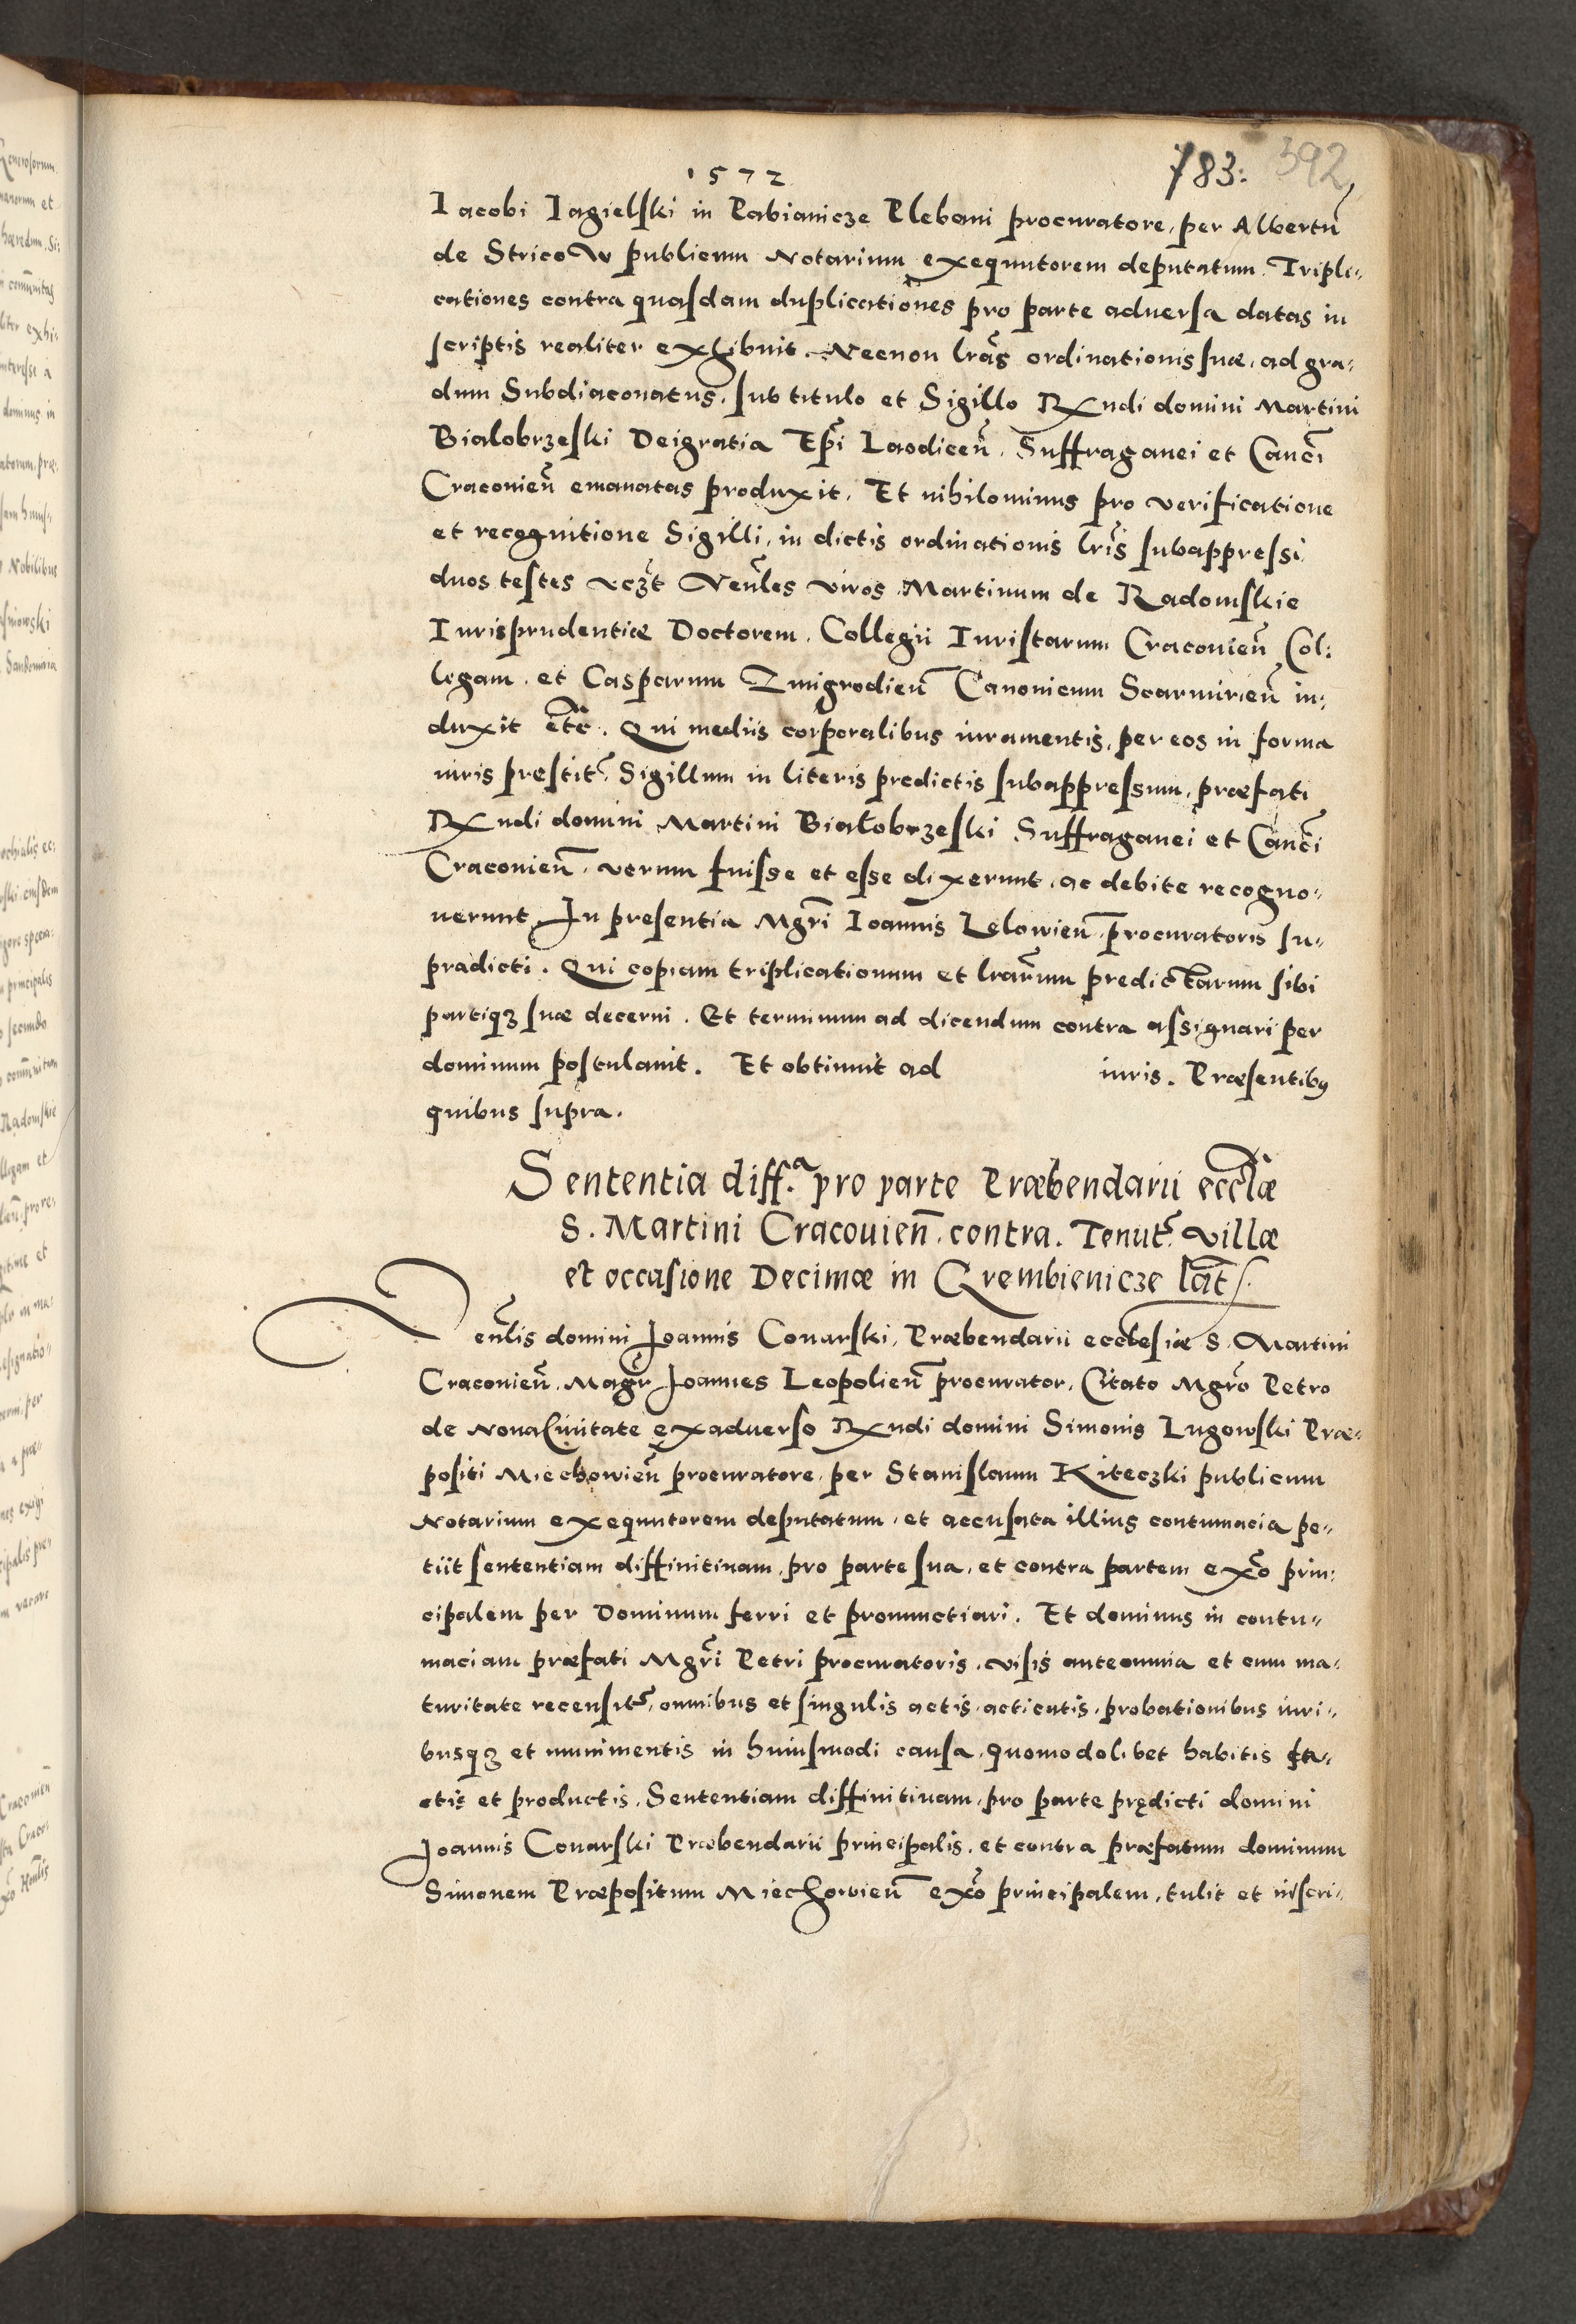 1572
783: 392
Iacobi Iagielski in Pabianicze Plebani procuratore, per Albertũ
de Stricow publicum Notarium exequutorem deputatum. Tripli-
cationes contra quasdam duplicationes pro parte aduersa datas in
scriptis realiter exhibuit. Necnon lrãs ordinationis suæ, ad gra-
dum Subdiaconatus, sub titulo et Sigillo Rxndi domini Martini
Bialobrzeski Dei gratia Epĩ Laodiceñ. Suffraganei et Canci
Cracovieñ emanatas produxit. Et nihilominus pro verificatione
et recognitione Sigilli, in dictis ordinationis lrĩs subappressi
duos testes vczt Venłes viros Martinum de Radomskie
Iurisprudentiæ Doctorem, Collegii Iuristarum Cracovieñ Col:
legam, et Casparum Zmigrodieñ Canonicum Scarmirieñ in:
duxit etc. Qui mediis corporalibus iuramentis, per eos in forma
iuris prestit. Sigillum in literis predictis subappressum, præfati
Rxndi domini Martini Białobrzeski Suffraganei et Canci
Cracovieñ, verum fuisse et esse dixerunt, ac debite recogno-
uerunt In presentia Mgri Ioannis Lelowieñ procuratoris su-
pradicti. Qui copiam triplicationum et lrarum predictarum sibi
partiqȝ suæ decerni. Et terminum ad dicendum contra assignari per
dominum postulauit. Et obtinuit ad iuris. Præsentibꝰ
quibus supra.
Sententia diff.ª pro parte Præbendarii eccłæ
S. Martini Cracouieñ. contra. Tenut. villæ
et occasione Decimæ in Qrembienicze lat.
Venłis domini Joannis Conarski, Præbendarii ecclesiæ S. Martini
Cracovieñ. Magr Joannes Leopolieñ procurator, Citato Mgro Petro
de Noua Ciuitate ex aduerso Rxndi domini Simonis Lugowski Præ-
positi Miechowieñ procuratore, per Stanislaum Kiteczki publicum
Notarium exequutorem deputatum, et accusata illius contumacia pe-
tiit sententiam diffinitiuam, pro parte sua, et contra partem exo prin:
cipalem per Dominum ferri et pronunctiari. Et dominus in contu-
maciam præfati Mgri Petri procuratoris, visis ante omnia et cum ma-
turitate recensit, omnibus et singulis actis, acticatis, probationibus iuri-
busqȝ et munimentis in huiusmodi causa, quomodolibet habitis fa-
ctis et productis, Sententiam diffinitiuam, pro parte prędicti domini
Joannis Conarski Præbendarii principalis, et contra præfatum dominum
Simonem Præpositum Miechowieñ exo principalem, tulit et in scri-